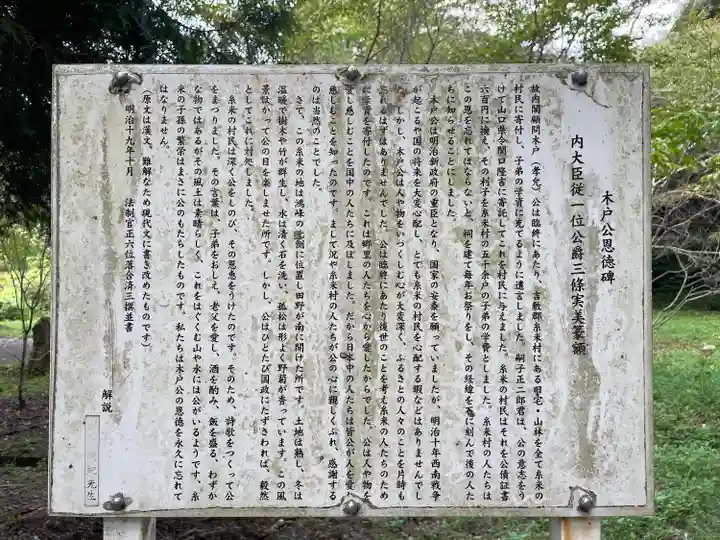 木戸公恩徳碑
内大臣従一位公爵三條実美篆額
故内閣顧問木戸(孝允)公は臨終にあたり、吉敷郡糸米村にある旧宅・山林を全て糸米の
村民に寄付し、子弟の学資に充てるように遺言しました。嗣子正二郎君は、公の意志をう
けて山口県令関口隆吉に寄託してこれを村民に与えました。糸米の村民はそれを公債証書
六百円に換え、その利子を糸米村の五十余戸の子弟の学費としました。糸米村の人たちは
この恩を忘れてはならないと、祠を建て毎年お祭りをし、その経緯を石に刻んで後の人た
ちに知らせることにしました。
木戸公は明治新政府の重臣となり、国家の安泰を願っていましたが、明治十年西南戦争
が起こるや国の将来を大変心配し、とても糸米の村民を心配する暇などはありませんでし
た。しかし、木戸公は人や物をいつくしむ心が大変深く、ふるさとの人々のことを片時も
忘れるはずはありませんでした。公は臨終にあたり後世のことを考え糸米の人たちのため
に学資を寄付したのです。これは郷里の人たちを心から愛したからでした。公は人や物を
愛し慈しむことを国中の人たちに及ぼしました。だから日本中の人たちは皆公が人を愛し
慈しむことを知ったのです。まして況や糸米村の人たちが公の心に親しくふれ、感謝する
のは当然のことでした。
さて、この糸米の地は鴻峰の側に位置し田野が南に開けた所です。土地は熟し、冬は
温暖で樹木や竹が群生し、水は清く石を洗い、孤松は形よく野菊が香っています。この風
景はかつて公の目を楽しませた所です。しかし、公はひとたび国政にたずさわれば、毅然
としてこれに対処しました。
糸米の村民は深く公をしのび、その恩恵をうけたのです。そのため、詩歌をつくって公
をまつりました。その言葉は、子弟をおしえ、老父を愛し、酒を酌み、飯を盛る、わずか
な物ではあるがその風土は素晴らしく、これをはぐくむ山や水には公がいるようです、糸
米の子孫の繁栄はまさに公のもたらしたものです。私たちは木戸公の恩徳を永久に忘れて
はなりません。
(原文は漢文、難解なため現代文に書き改めたものです)
明治十九年十月 法制官正六位落合済三撰並書
解説
元生